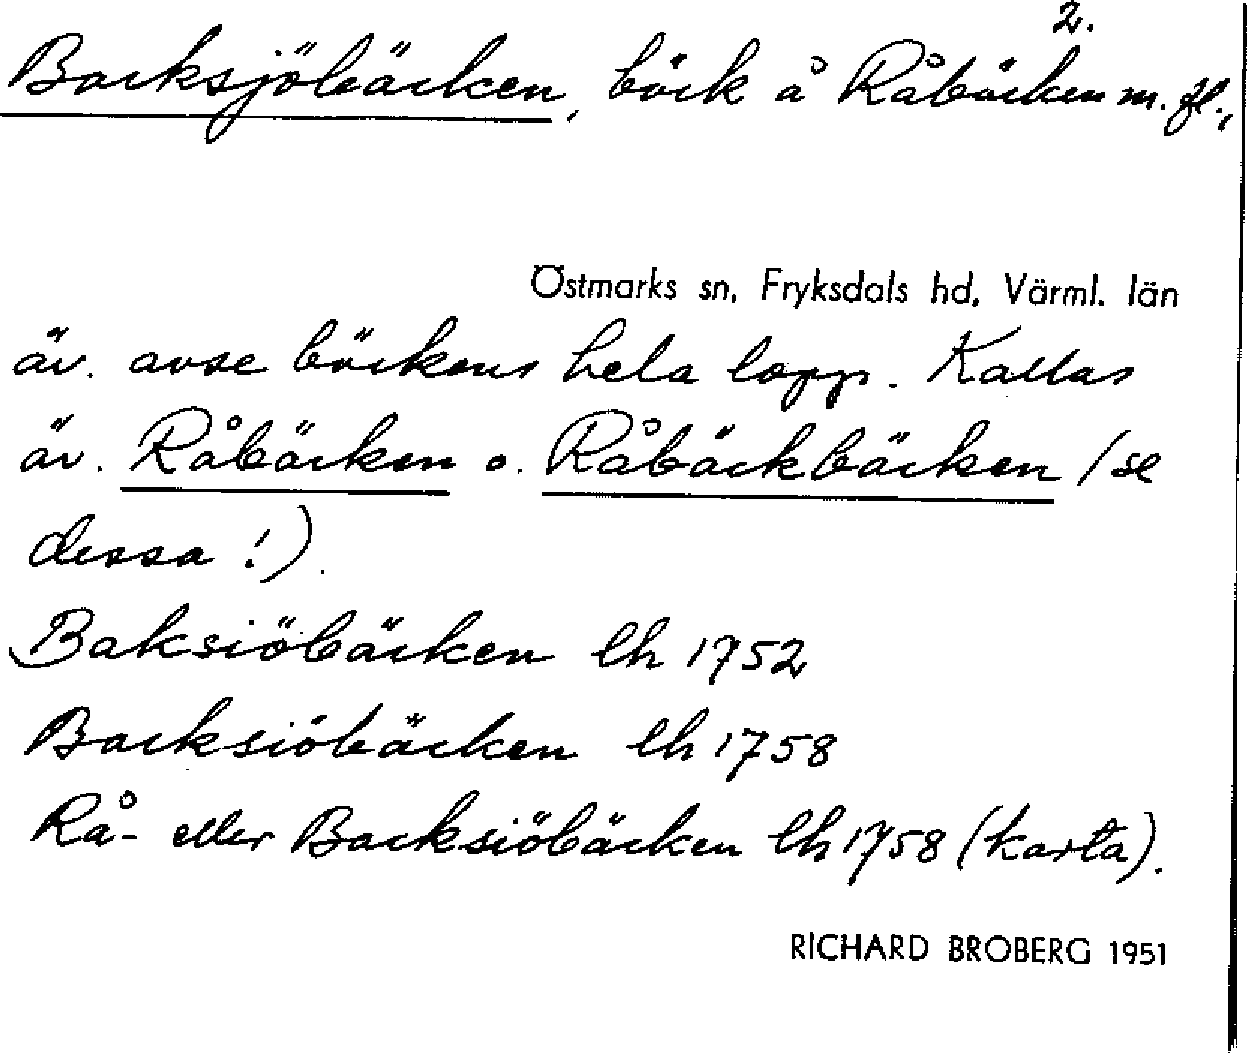 2.
Backsjöbäcken, bäck å Råbäcken m. fl.,
Östmarks sn, Fryksdals hd, Värml. län
äv. avse bäckens hela lopp. Kallas
äv. Råbäcken o. Råbäckbäcken (se
dessa!).
Baksiöbäcken lh 1752
Backsiöbäcken lh 1758
Rå- eller Backsiöbäcken lh 1758 (karta).
RICHARD BROBERG 1951